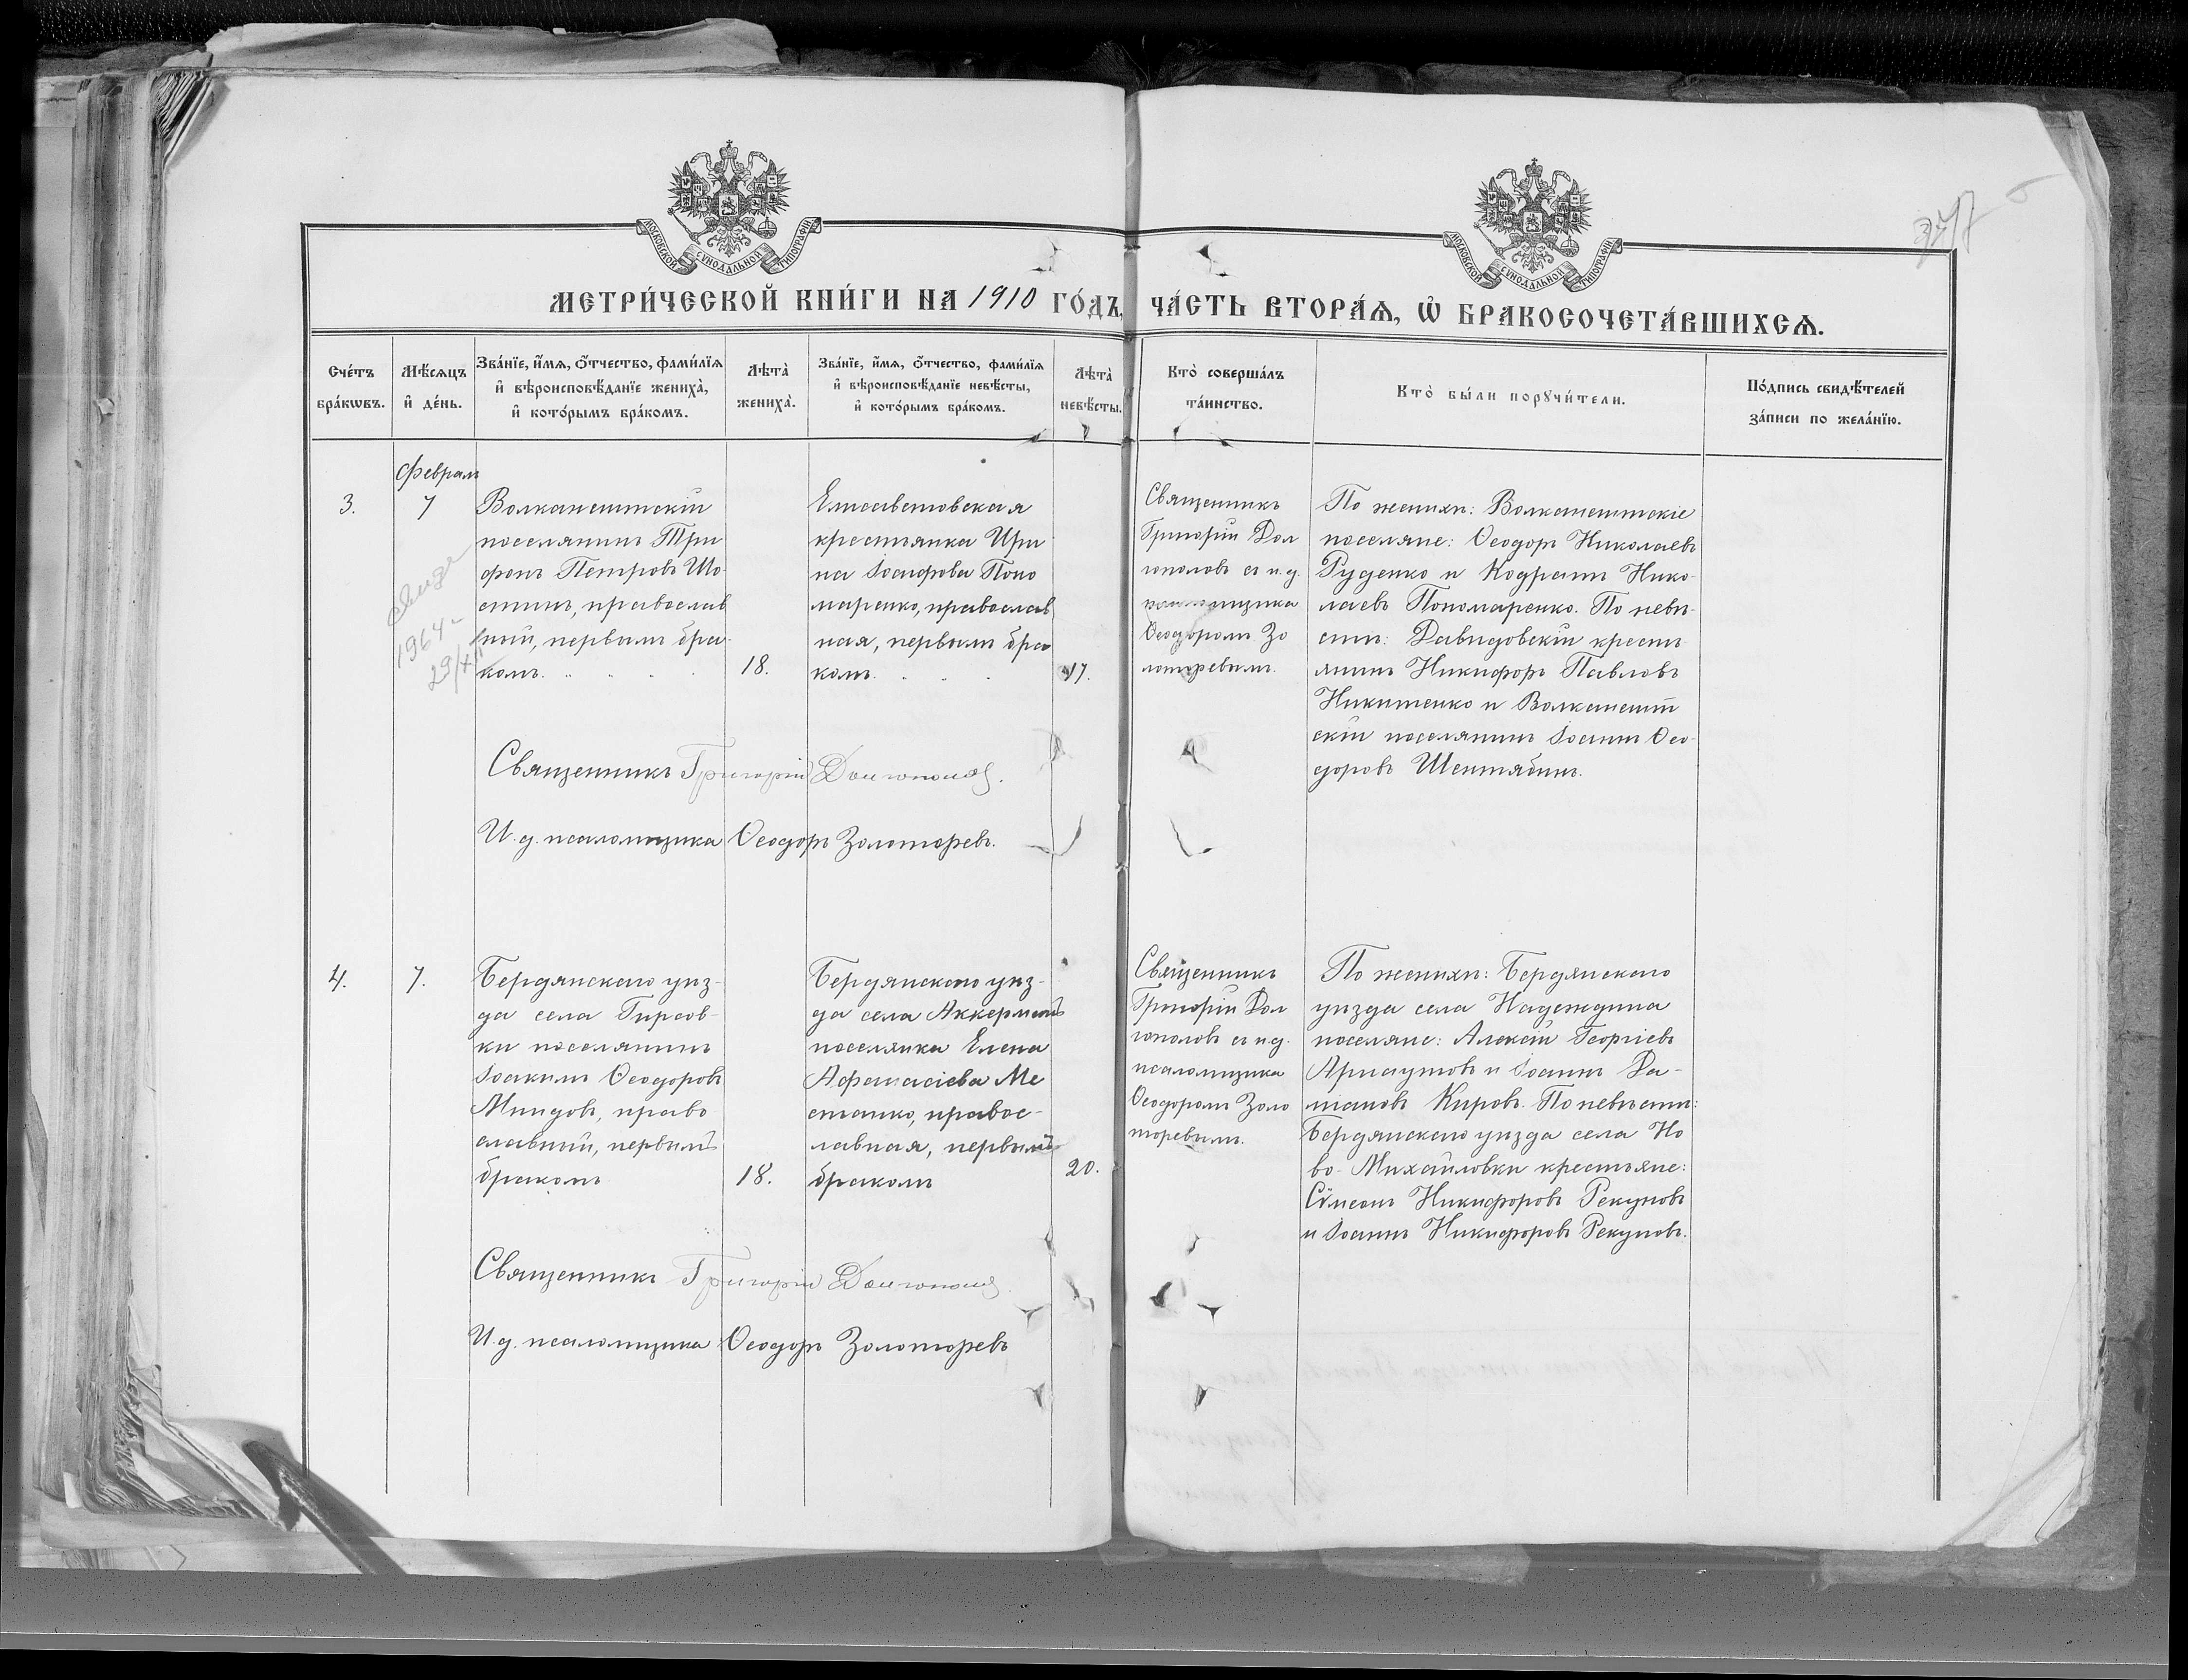 МОСКОВСКОЙ СѴНОДАЛЬНОЙ ТИПОГРАФІИ
МОСКОВСКОЙ СѴНОДАЛЬНОЙ ТИПОГРАФІИ
МЕТРИ́ЧЕСКОЙ КНИ́ГИ НА 1910 ГО́ДЪ, ЧА́СТЬ ВТОРА́Ѧ, Ѡ҆ БРАКОСОЧЕТА́ВШИХСѦ.
Сче́тъ
бра́кѡвъ.
Мѣ́сяцъ
и҆ де́нь.
Зва́нїе, и҆́мѧ, о҆́тчество, фами́лїѧ
и҆ вѣроисповѣ́данїе жениха̀,
и҆ кото́рымъ бра́комъ.
Лѣта̀
жениха̀.
Зва́нїе, и҆́мѧ, о҆́тчество, фами́лїѧ
и҆ вѣроисповѣ́данїе невѣ́сты,
и҆ кото́рымъ бра́комъ.
Лѣта̀
невѣ́сты.
Кто̀ соверша́лъ
та́инство.
Кто̀ бы́ли порꙋчи́тели.
По́дпись свидѣ́телей
за́писи по жела́нїю.
Февраль
3.
7
Волканештскій
поселянинъ Три
фонъ Петровъ Шо-
стинъ, православ
ный, первымъ бра-
комъ.
18.
Елисаветовская
крестьянка Ири
на Іосифова Поно
маренко, православ
ная, первымъ бра
комъ.
17.
Священникъ
Григорій Дол
гополовъ съ и.д.
псаломщика
Ѳеодоромъ Зо
лоторевымъ.
По женихѣ: Волканештскіе
поселяне: Ѳеодоръ Николаевъ
Руденко и Кодратъ Нико-
лаевъ Пономаренко. По невѣ-
стѣ: Давидовскій кресть
янинъ Никифоръ Павловъ
Никитенко и Волканешт
скій поселянинъ Іоаннъ Ѳео-
доровъ Шентябинъ.
1964
29/X
Священникъ Григорій Долгополов.
И. д. псаломщика Ѳеодоръ Золоторевъ.
4.
7.
Бердянскаго уѣз-
да села Гирсов-
ки поселянинъ
Іоакимъ Ѳеодоровъ
Миндовъ, право
славный, первымъ
бракомъ
18.
Бердянскаго уѣз-
да села Аккерменъ
поселянка Елена
Афанасіева Ме
станко, правос-
лавная, первымъ
бракомъ
20.
Священникъ
Григорій Дол
гополовъ съ и.д.
псаломщика
Ѳеодоромъ Золо
торевымъ.
По женихѣ: Бердянскаго
уѣзда села Надеждина
поселяне: Алексій Георгіевъ
Арнаутовъ и Іоаннъ Да-
міановъ Кировъ. По невѣстѣ:
Бердянскаго уѣзда села Но
во-Михайловки крестьяне:
Сѵмеонъ Никифоровъ Рекуновъ
и Іоаннъ Никифоровъ Рекуновъ.
Священникъ Григорій Долгополов.
И. д. псаломщика Ѳеодоръ Золоторевъ